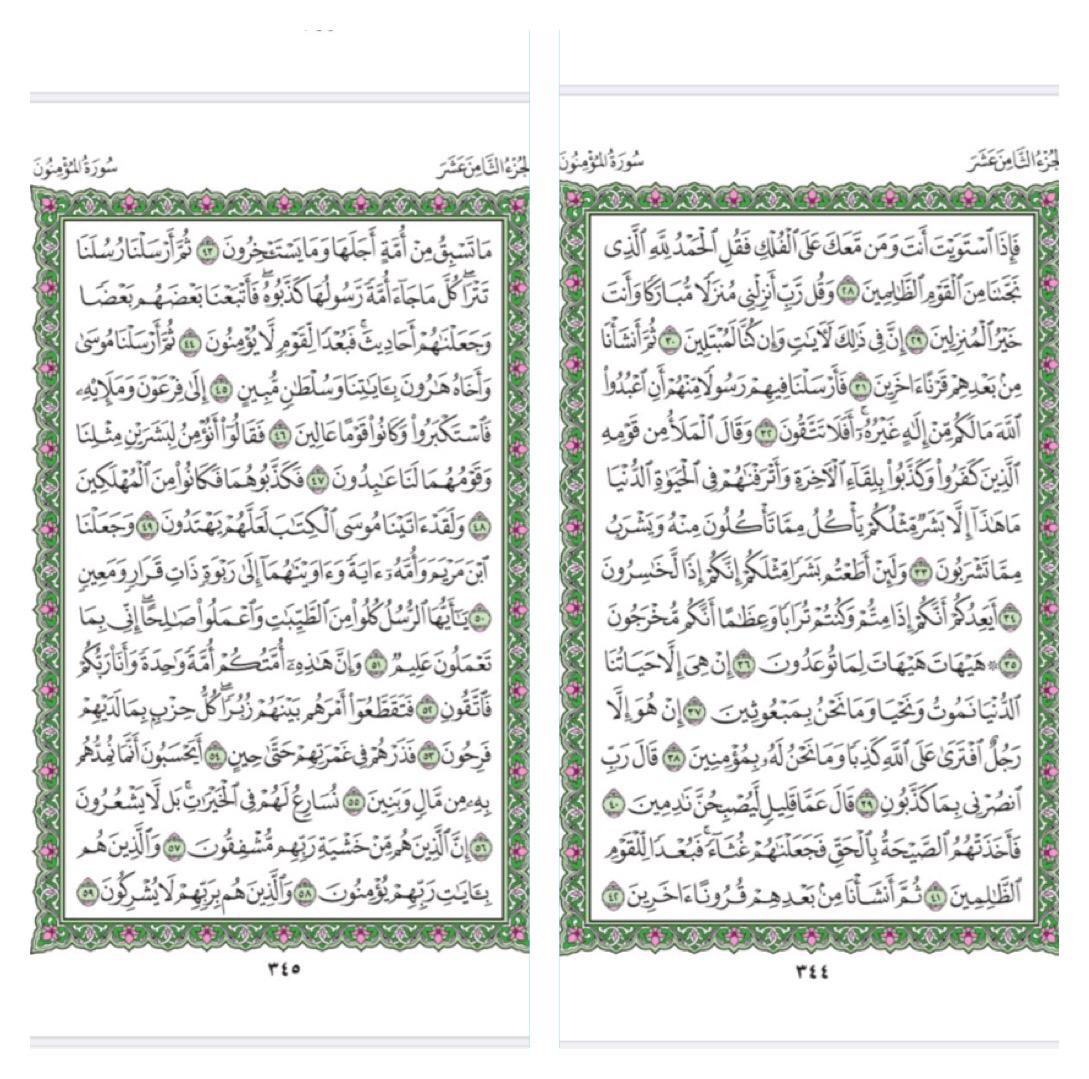 الجزء الثامن عشر
سورة المؤمنون
فَإِذَا ٱسْتَوَيْتَ أَنتَ وَمَن مَّعَكَ عَلَى ٱلْفُلْكِ فَقُلِ ٱلْحَمْدُ لِلَّهِ ٱلَّذِى
نَجَّىٰنَا مِنَ ٱلْقَوْمِ ٱلظَّٰلِمِينَ ٢٨ وَقُل رَّبِّ أَنزِلْنِى مُنزَلًا مُّبَارَكًا وَأَنتَ
خَيْرُ ٱلْمُنزِلِينَ ٢٩ إِنَّ فِى ذَٰلِكَ لَءَايَٰتٍ وَإِن كُنَّا لَمُبْتَلِينَ ٣٠ ثُمَّ أَنشَأْنَا
مِنۢ بَعْدِهِمْ قَرْنًا ءَاخَرِينَ ٣١ فَأَرْسَلْنَا فِيهِمْ رَسُولًا مِّنْهُمْ أَنِ ٱعْبُدُوا۟
ٱللَّهَ مَا لَكُم مِّنْ إِلَٰهٍ غَيْرُهُۥٓ ۖ أَفَلَا تَتَّقُونَ ٣٢ وَقَالَ ٱلْمَلَأُ مِن قَوْمِهِ
ٱلَّذِينَ كَفَرُوا۟ وَكَذَّبُوا۟ بِلِقَآءِ ٱلْءَاخِرَةِ وَأَتْرَفْنَٰهُمْ فِى ٱلْحَيَوٰةِ ٱلدُّنْيَا
مَا هَٰذَآ إِلَّا بَشَرٌ مِّثْلُكُمْ يَأْكُلُ مِمَّا تَأْكُلُونَ مِنْهُ وَيَشْرَبُ
مِمَّا تَشْرَبُونَ ٣٣ وَلَئِنْ أَطَعْتُم بَشَرًا مِّثْلَكُمْ إِنَّكُمْ إِذًا لَّخَٰسِرُونَ
٣٤ أَيَعِدُكُمْ أَنَّكُمْ إِذَا مِتُّمْ وَكُنتُمْ تُرَابًا وَعِظَٰمًا أَنَّكُم مُّخْرَجُونَ
٣٥ ۞ هَيْهَاتَ هَيْهَاتَ لِمَا تُوعَدُونَ ٣٦ إِنْ هِىَ إِلَّا حَيَاتُنَا
ٱلدُّنْيَا نَمُوتُ وَنَحْيَا وَمَا نَحْنُ بِمَبْعُوثِينَ ٣٧ إِنْ هُوَ إِلَّا
رَجُلٌ ٱفْتَرَىٰ عَلَى ٱللَّهِ كَذِبًا وَمَا نَحْنُ لَهُۥ بِمُؤْمِنِينَ ٣٨ قَالَ رَبِّ
ٱنصُرْنِى بِمَا كَذَّبُونِ ٣٩ قَالَ عَمَّا قَلِيلٍ لَّيُصْبِحُنَّ نَٰدِمِينَ ٤٠
فَأَخَذَتْهُمُ ٱلصَّيْحَةُ بِٱلْحَقِّ فَجَعَلْنَٰهُمْ غُثَآءً ۚ فَبُعْدًا لِّلْقَوْمِ
ٱلظَّٰلِمِينَ ٤١ ثُمَّ أَنشَأْنَا مِنۢ بَعْدِهِمْ قُرُونًا ءَاخَرِينَ ٤٢
٣٤٤
الجزء الثامن عشر
سورة المؤمنون
مَا تَسْبِقُ مِنْ أُمَّةٍ أَجَلَهَا وَمَا يَسْتَـْٔخِرُونَ ٤٣ ثُمَّ أَرْسَلْنَا رُسُلَنَا
تَتْرَا ۖ كُلَّ مَا جَآءَ أُمَّةً رَّسُولُهَا كَذَّبُوهُ ۚ فَأَتْبَعْنَا بَعْضَهُم بَعْضًا
وَجَعَلْنَٰهُمْ أَحَادِيثَ ۚ فَبُعْدًا لِّقَوْمٍ لَّا يُؤْمِنُونَ ٤٤ ثُمَّ أَرْسَلْنَا مُوسَىٰ
وَأَخَاهُ هَٰرُونَ بِـَٔايَٰتِنَا وَسُلْطَٰنٍ مُّبِينٍ ٤٥ إِلَىٰ فِرْعَوْنَ وَمَلَإِي۟هِۦ
فَٱسْتَكْبَرُوا۟ وَكَانُوا۟ قَوْمًا عَالِينَ ٤٦ فَقَالُوٓا۟ أَنُؤْمِنُ لِبَشَرَيْنِ مِثْلِنَا
وَقَوْمُهُمَا لَنَا عَٰبِدُونَ ٤٧ فَكَذَّبُوهُمَا فَكَانُوا۟ مِنَ ٱلْمُهْلَكِينَ
٤٨ وَلَقَدْ ءَاتَيْنَا مُوسَى ٱلْكِتَٰبَ لَعَلَّهُمْ يَهْتَدُونَ ٤٩ وَجَعَلْنَا
ٱبْنَ مَرْيَمَ وَأُمَّهُۥٓ ءَايَةً وَءَاوَيْنَٰهُمَآ إِلَىٰ رَبْوَةٍ ذَاتِ قَرَارٍ وَمَعِينٍ
٥٠ يَٰٓأَيُّهَا ٱلرُّسُلُ كُلُوا۟ مِنَ ٱلطَّيِّبَٰتِ وَٱعْمَلُوا۟ صَٰلِحًا ۖ إِنِّى بِمَا
تَعْمَلُونَ عَلِيمٌ ٥١ وَإِنَّ هَٰذِهِۦٓ أُمَّتُكُمْ أُمَّةً وَٰحِدَةً وَأَنَا۠ رَبُّكُمْ
فَٱتَّقُونِ ٥٢ فَتَقَطَّعُوٓا۟ أَمْرَهُم بَيْنَهُمْ زُبُرًا ۖ كُلُّ حِزْبٍۭ بِمَا لَدَيْهِمْ
فَرِحُونَ ٥٣ فَذَرْهُمْ فِى غَمْرَتِهِمْ حَتَّىٰ حِينٍ ٥٤ أَيَحْسَبُونَ أَنَّمَا نُمِدُّهُم
بِهِۦ مِن مَّالٍ وَبَنِينَ ٥٥ نُسَارِعُ لَهُمْ فِى ٱلْخَيْرَٰتِ ۚ بَل لَّا يَشْعُرُونَ
٥٦ إِنَّ ٱلَّذِينَ هُم مِّنْ خَشْيَةِ رَبِّهِم مُّشْفِقُونَ ٥٧ وَٱلَّذِينَ هُم
بِـَٔايَٰتِ رَبِّهِمْ يُؤْمِنُونَ ٥٨ وَٱلَّذِينَ هُم بِرَبِّهِمْ لَا يُشْرِكُونَ ٥٩
٣٤٥